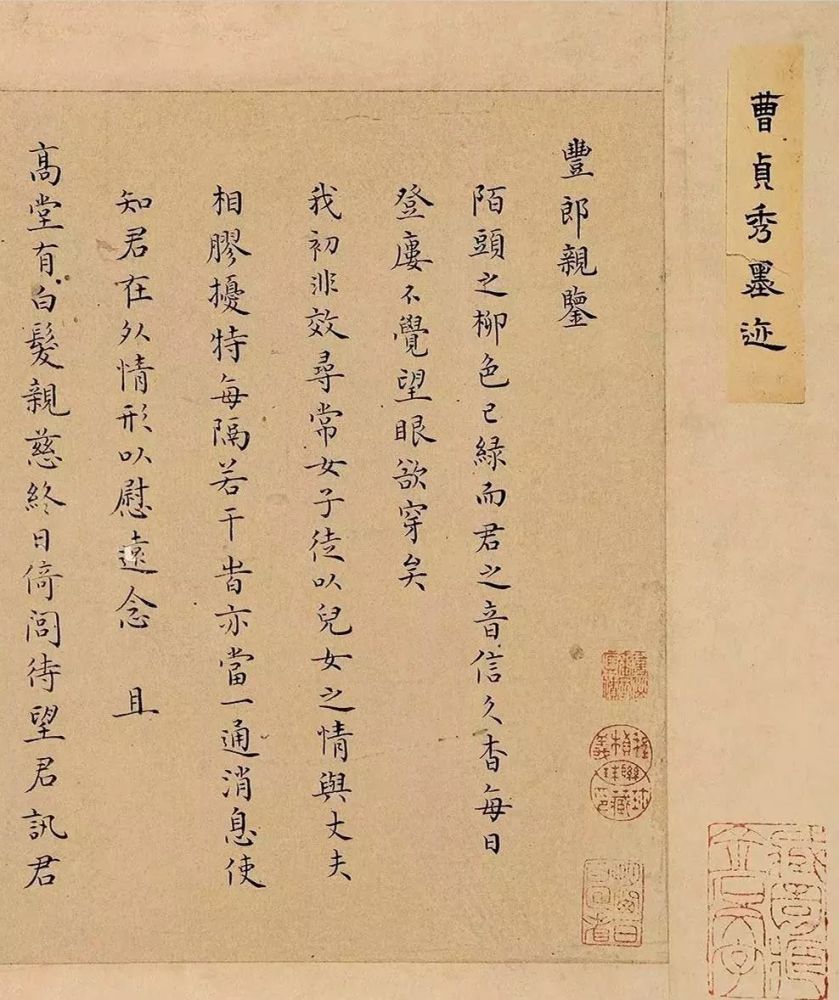 曹貞秀墨迹
豐郎親鑒
陌頭之柳色已綠而君之音信久杳每日
登廔不覺望眼欲穿矣
我初非效尋常女子徒以兒女之情與丈夫
相膠擾特每隔若干旹亦當一通消息使
知君在外情形以慰遠念 且
高堂有白髮親慈終日倚閭待望君訊君